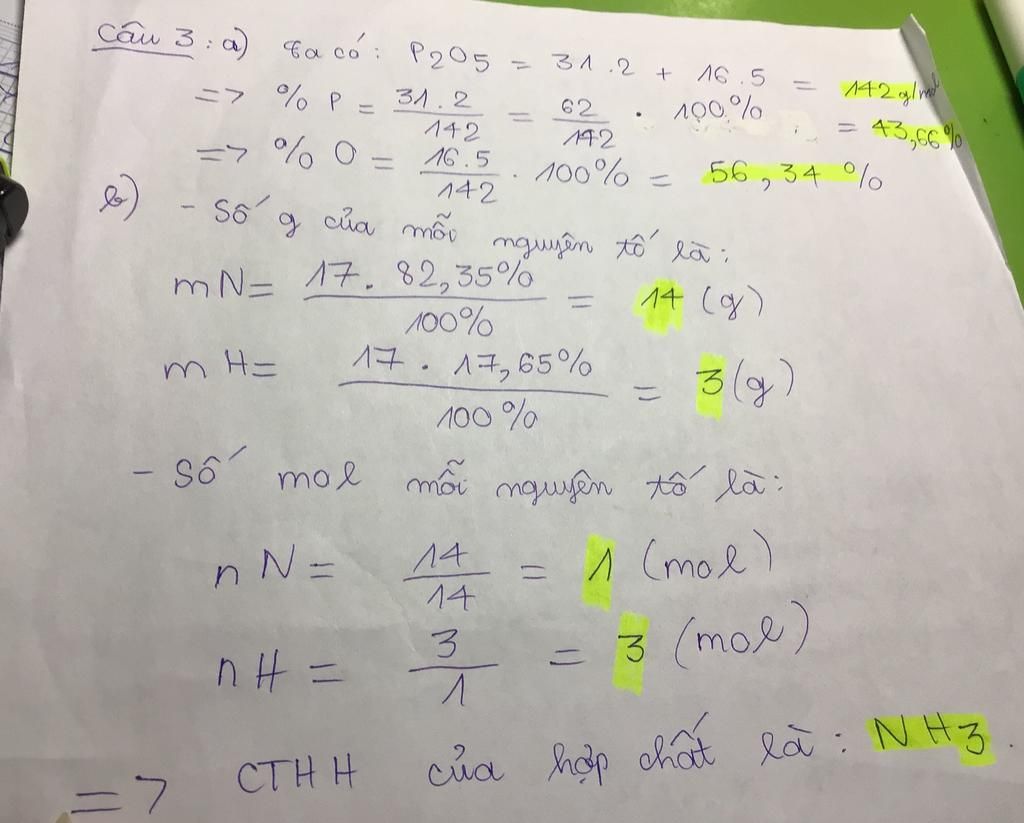 Câu 3 : a) ta có : P2O5 = 31.2 + 16.5 = 142 g/mol
=> % P = 31.2/142 = 62/142 . 100% = 43,66%
=> % O = 16.5/142 . 100% = 56,34 %
b) - Số g của mỗi nguyên tố là :
mN = 17. 82,35%/100% = 14 (g)
mH = 17 . 17,65%/100% = 3 (g)
- Số mol mỗi nguyên tố là :
nN = 14/14 = 1 (mol)
nH = 3/1 = 3 (mol)
=> CTHH của hợp chất là : NH3.